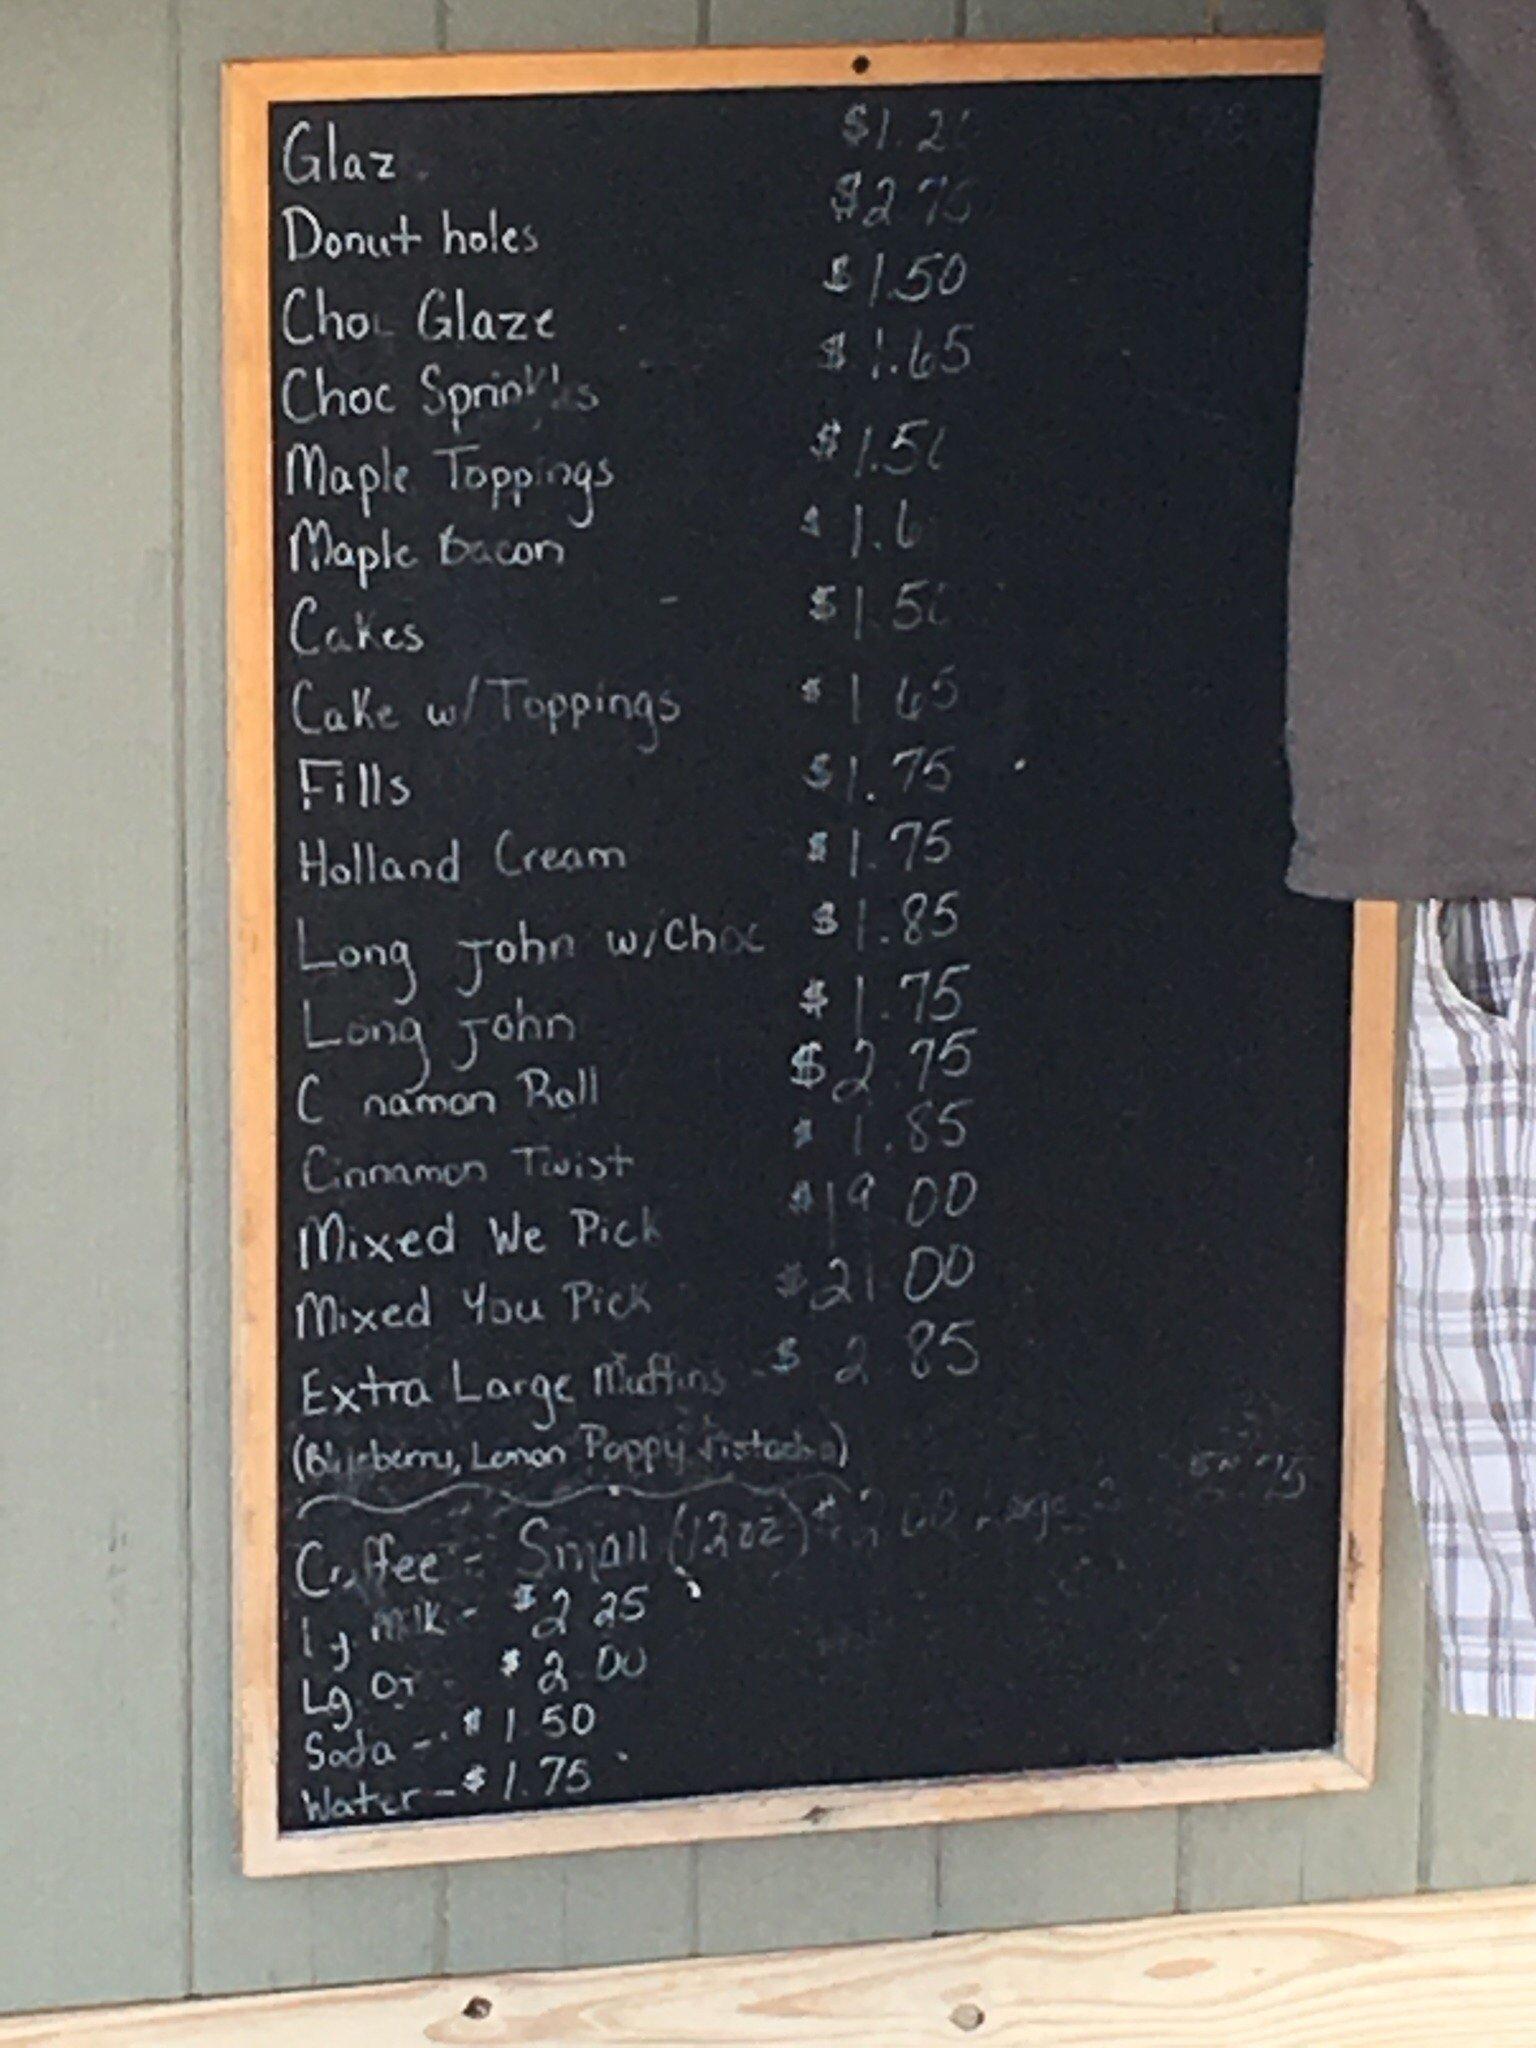 Glaz $1.2
Donut holes $2.75
Choc Glaze $1.50
Choc Sprinkles $1.65
Maple Toppings $1.5
Maple Bacon $1.6
Cakes $1.5
Cake w/Toppings $1.65
Fills $1.75
Holland Cream $1.75
Long John w/Choc $1.85
Long John $1.75
C namon Roll $2.75
Cinnamon Twist $1.85
Mixed We Pick $19 00
Mixed You Pick $21 00
Extra Large Muffins - $2 85
(Blueberry, Lemon Poppy, Pistachio)
Coffee - Small (12oz) Large
Lg. Milk - $2 25
Lg. OJ - $2 00
Soda - $1 50
Water - $1.75